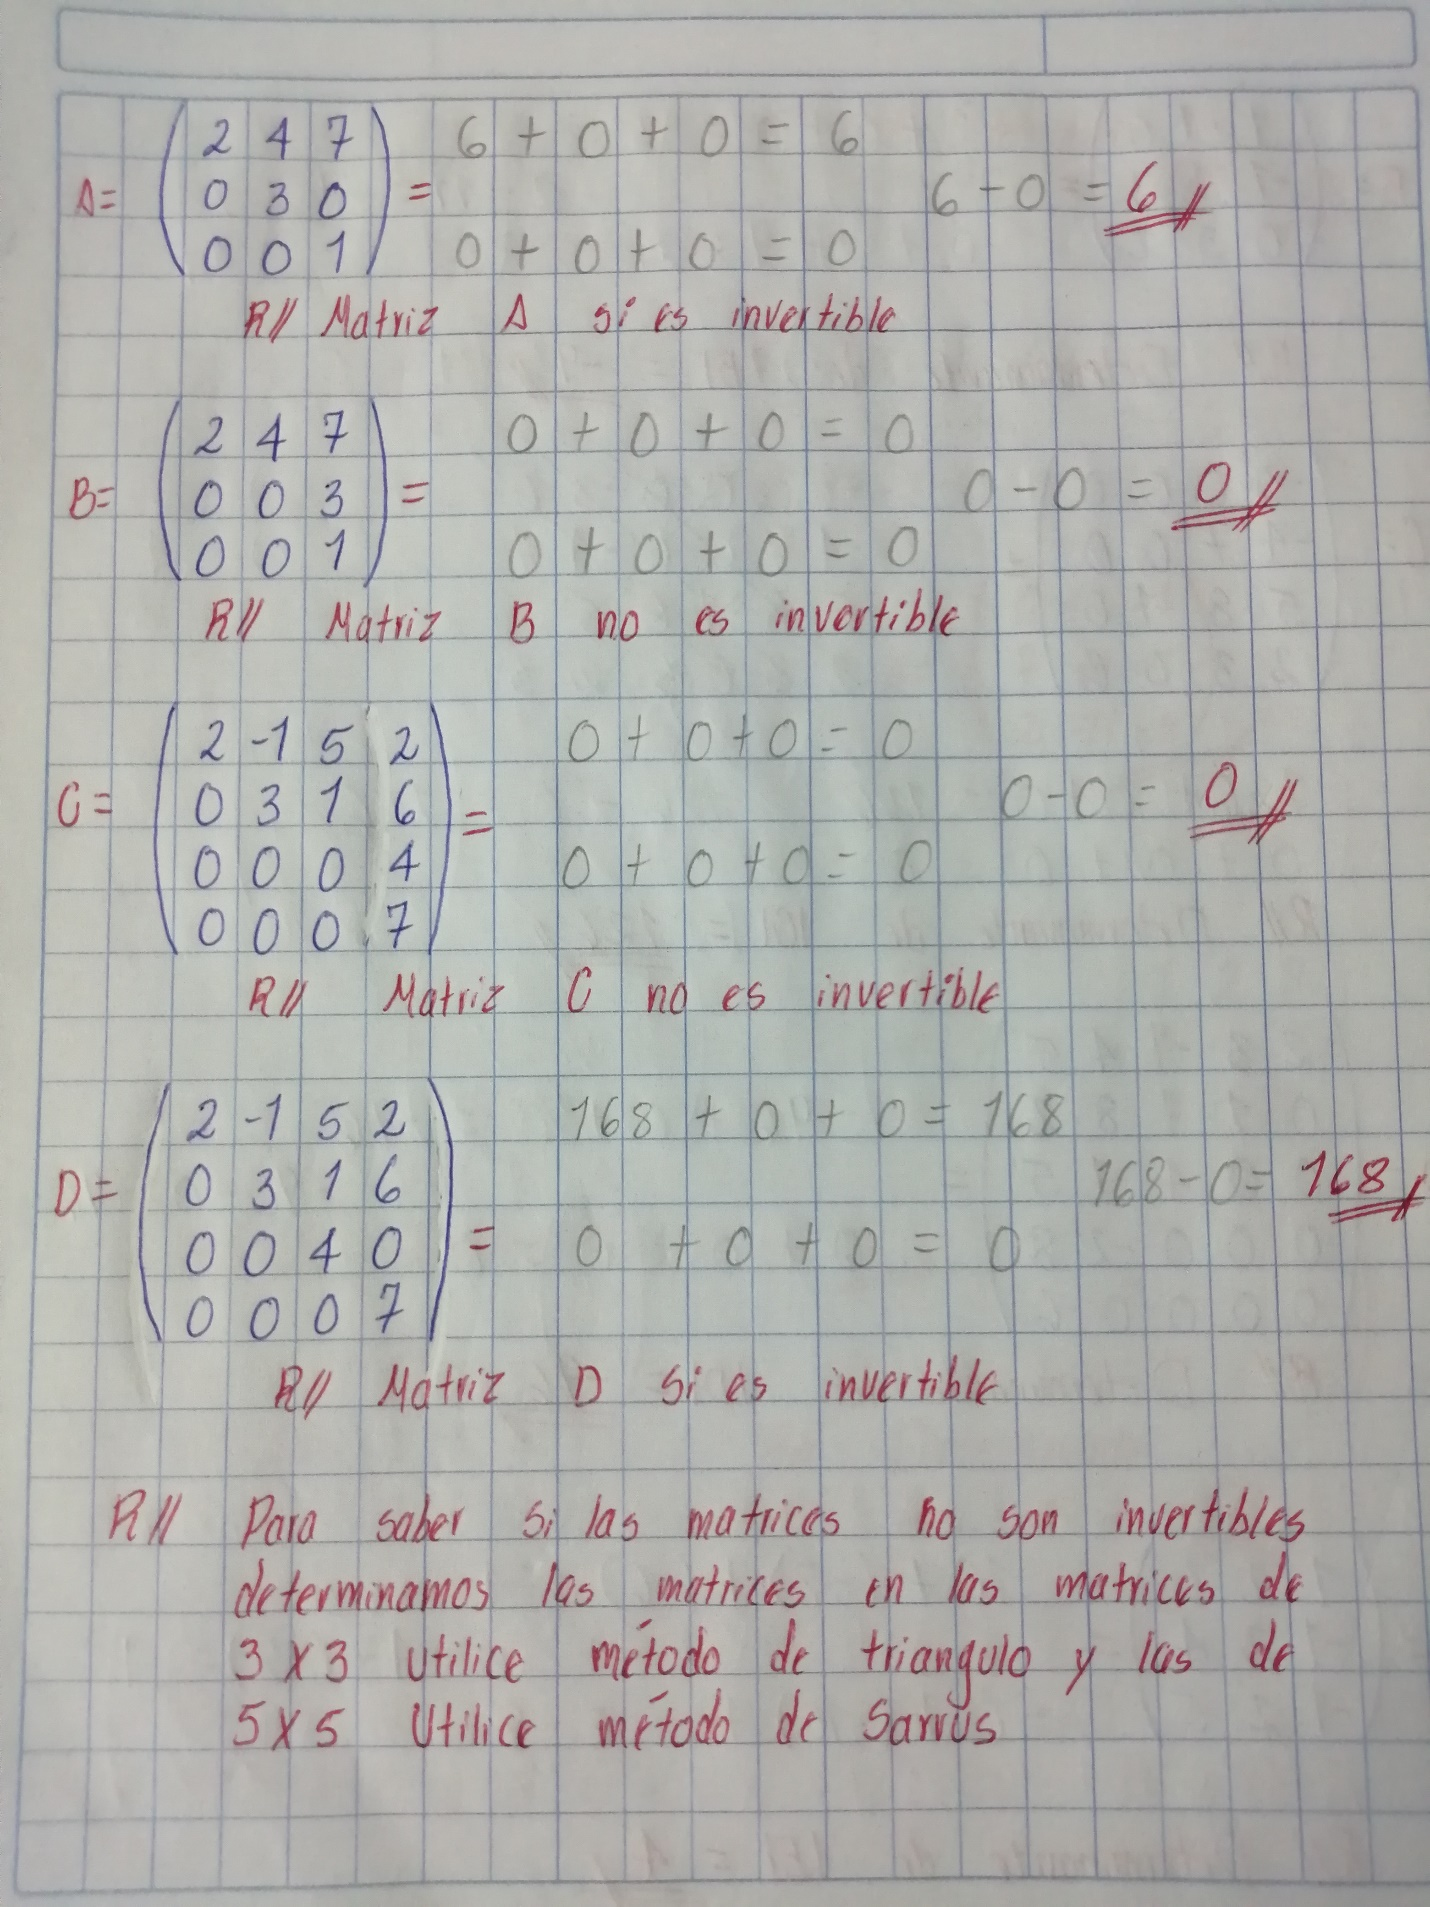 A= (2 4 7 = 6 + 0 + 0 = 6
0 3 0 6 - 0 = 6
0 0 1) 0 + 0 + 0 = 0
R// Matriz A si es invertible
B= (2 4 7 = 0 + 0 + 0 = 0
0 0 3 0 - 0 = 0
0 0 1) 0 + 0 + 0 = 0
R// Matriz B no es invertible
C= (2 -1 5 2 = 0 + 0 + 0 = 0
0 3 1 6 0 - 0 = 0
0 0 0 4 0 + 0 + 0 = 0
0 0 0 7)
R// Matriz C no es invertible
D= (2 -1 5 2 168 + 0 + 0 = 168
0 3 1 6 168 - 0 = 168
0 0 4 0 = 0 + 0 + 0 = 0
0 0 0 7)
R// Matriz D Si es invertible
R// Para saber si las matrices no son invertibles
determinamos las matrices en las matrices de
3 X 3 utilice método de triangulo y las de
5 X 5 Utilice método de Sarrus